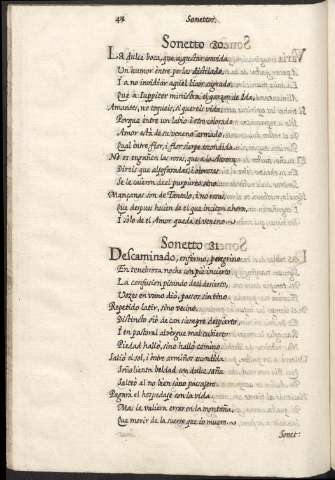 48 Sonettos.
Sonetto 30.
La dulce boca, que a gustar convida
Un humor entre perlas distilado,
I a no invidiar aquel licor sagrado,
Que a Iuppiter ministra el garçon de Ida,
Amantes, no toqueis, si quereis vida,
Porque entre un labio i otro colorado
Amor està de su veneno armado,
Qual entre flor, i flor sierpe escondida.
No os engañen las rosas, que a la Aurora
Direis que aljofaradas, i olorosas
Se le cayeron del purpureo seno.
Mançanas son de Tantalo, i no rosas,
Que despues huien de el que incitan ahora,
I solo de el Amor queda el veneno.
Sonetto 31.
Descaminado, enfermo, peregrino
En tenebrosa noche con pie incierto
La confusion pisando de el desierto,
Vozes en vano diò, passos sin tino.
Repetido latir, sino vecino,
Distincto oiò de can siempre despierto,
I en pastoral alvergue mal cubierto
Piedad hallò, sino hallò camino.
Saliò el sol, i entre armiños escondida
Soñolienta beldad con dulce saña
Salteò al no bien sano passagero.
Pagarà el hospedage con la vida.
Mas le valiera errar en la montaña,
Que morir de la suerte que io muero.
Sonet-